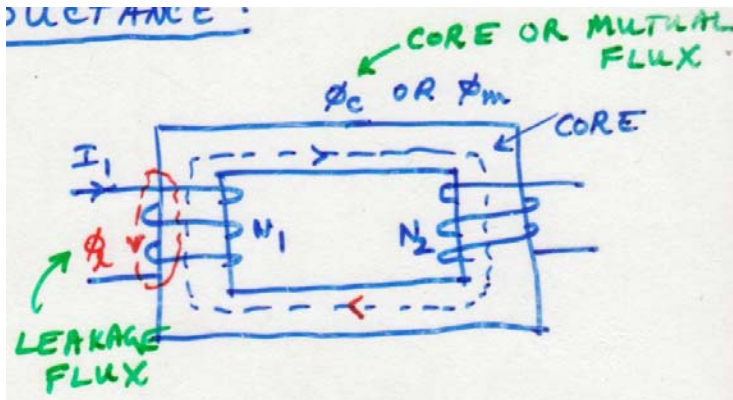 DUCTANCE:
CORE OR MUTUAL
FLUX
ϕc OR ϕm
CORE
I1
N1
N2
ϕl
LEAKAGE
FLUX